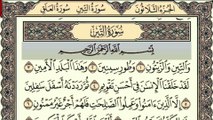 الجزء الثلاثون سورة التين سورة العلق
سورة التين
بسم الله الرحمن الرحيم
والتين والزيتون وطور سينين وهذا البلد الأمين
لقد خلقنا الإنسان في أحسن تقويم ثم رددناه أسفل سافلين
إلا الذين آمنوا وعملوا الصالحات فلهم أجر غير ممنون